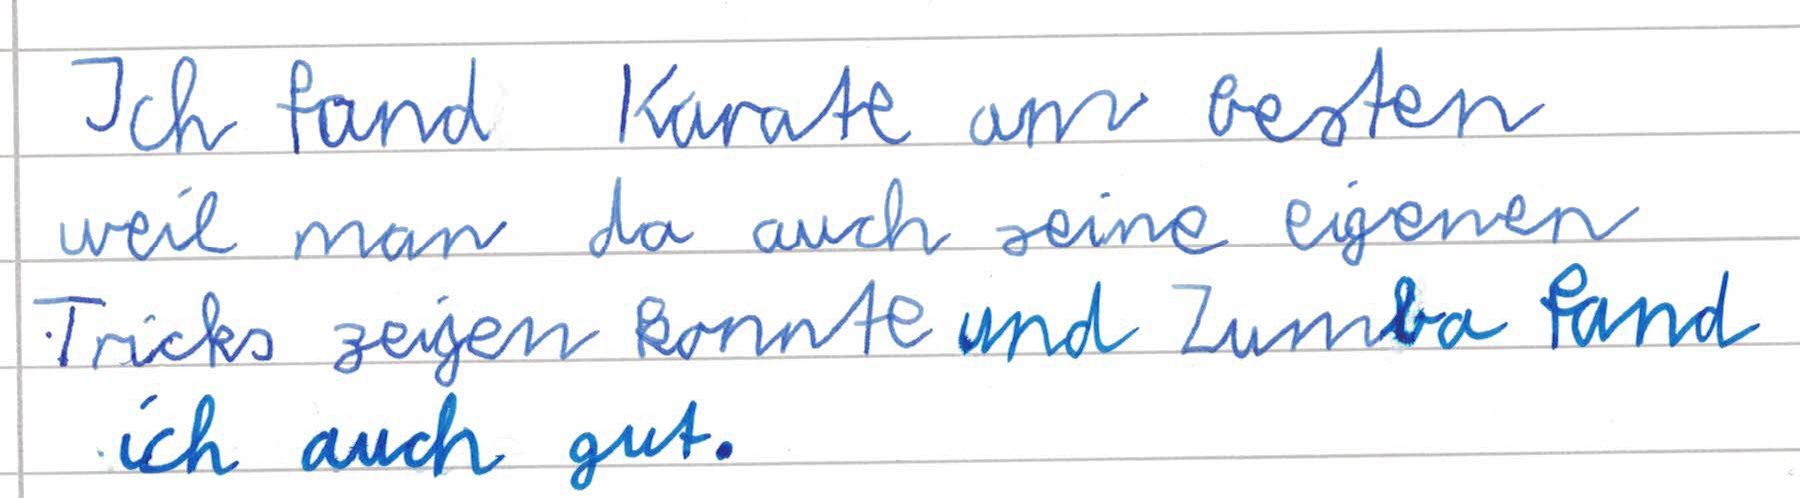 Ich fand Karate am besten
weil man da auch seine eigenen
Tricks zeigen konnte und Zumba fand
ich auch gut.